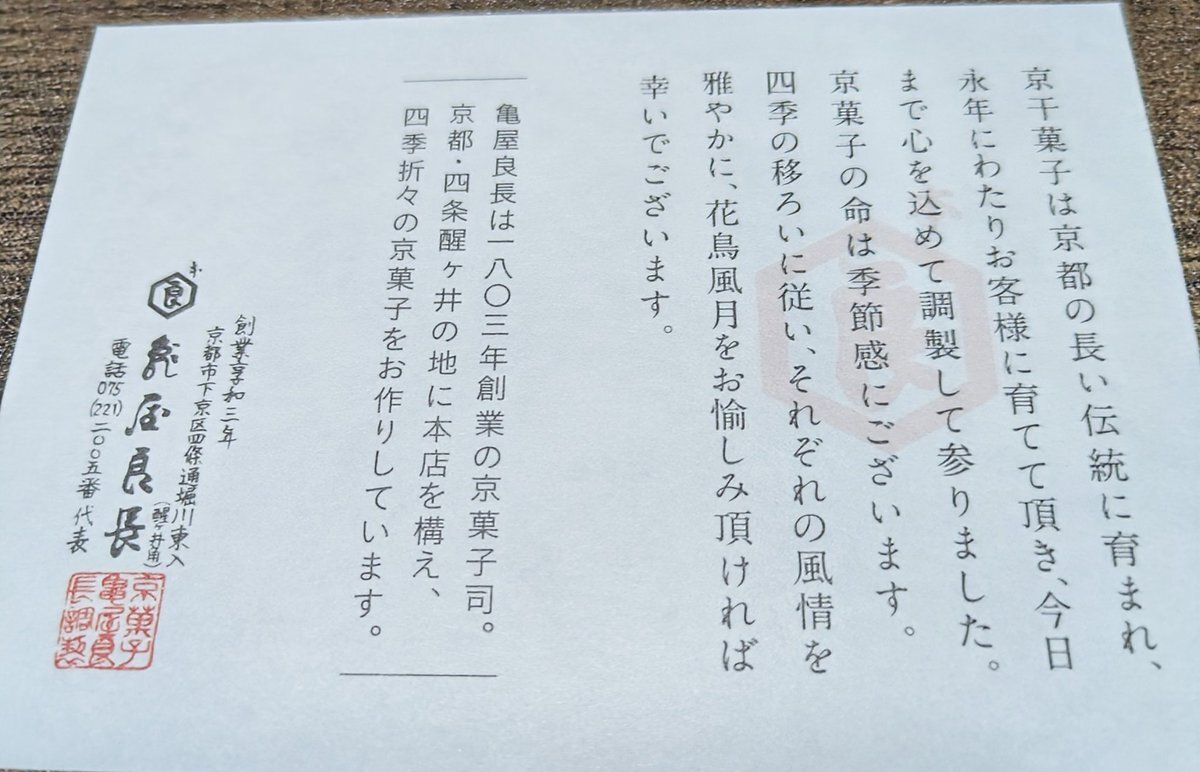 京干菓子は京都の長い伝統に育まれ、
永年にわたりお客様に育てて頂き、今日
まで心を込めて調製して参りました。
京菓子の命は季節感にございます。
四季の移ろいに従い、それぞれの風情を
雅やかに、花鳥風月をお愉しみ頂ければ
幸いでございます。
亀屋良長は一八〇三年創業の京菓子司。
京都・四条醒ヶ井の地に本店を構え、
四季折々の京菓子をお作りしています。
創業享和三年
京都市下京区四條通堀川東入
(醒ヶ井角)
良
亀屋良長
電話075(221)二〇〇五番代表
京菓子
亀屋良
長調製